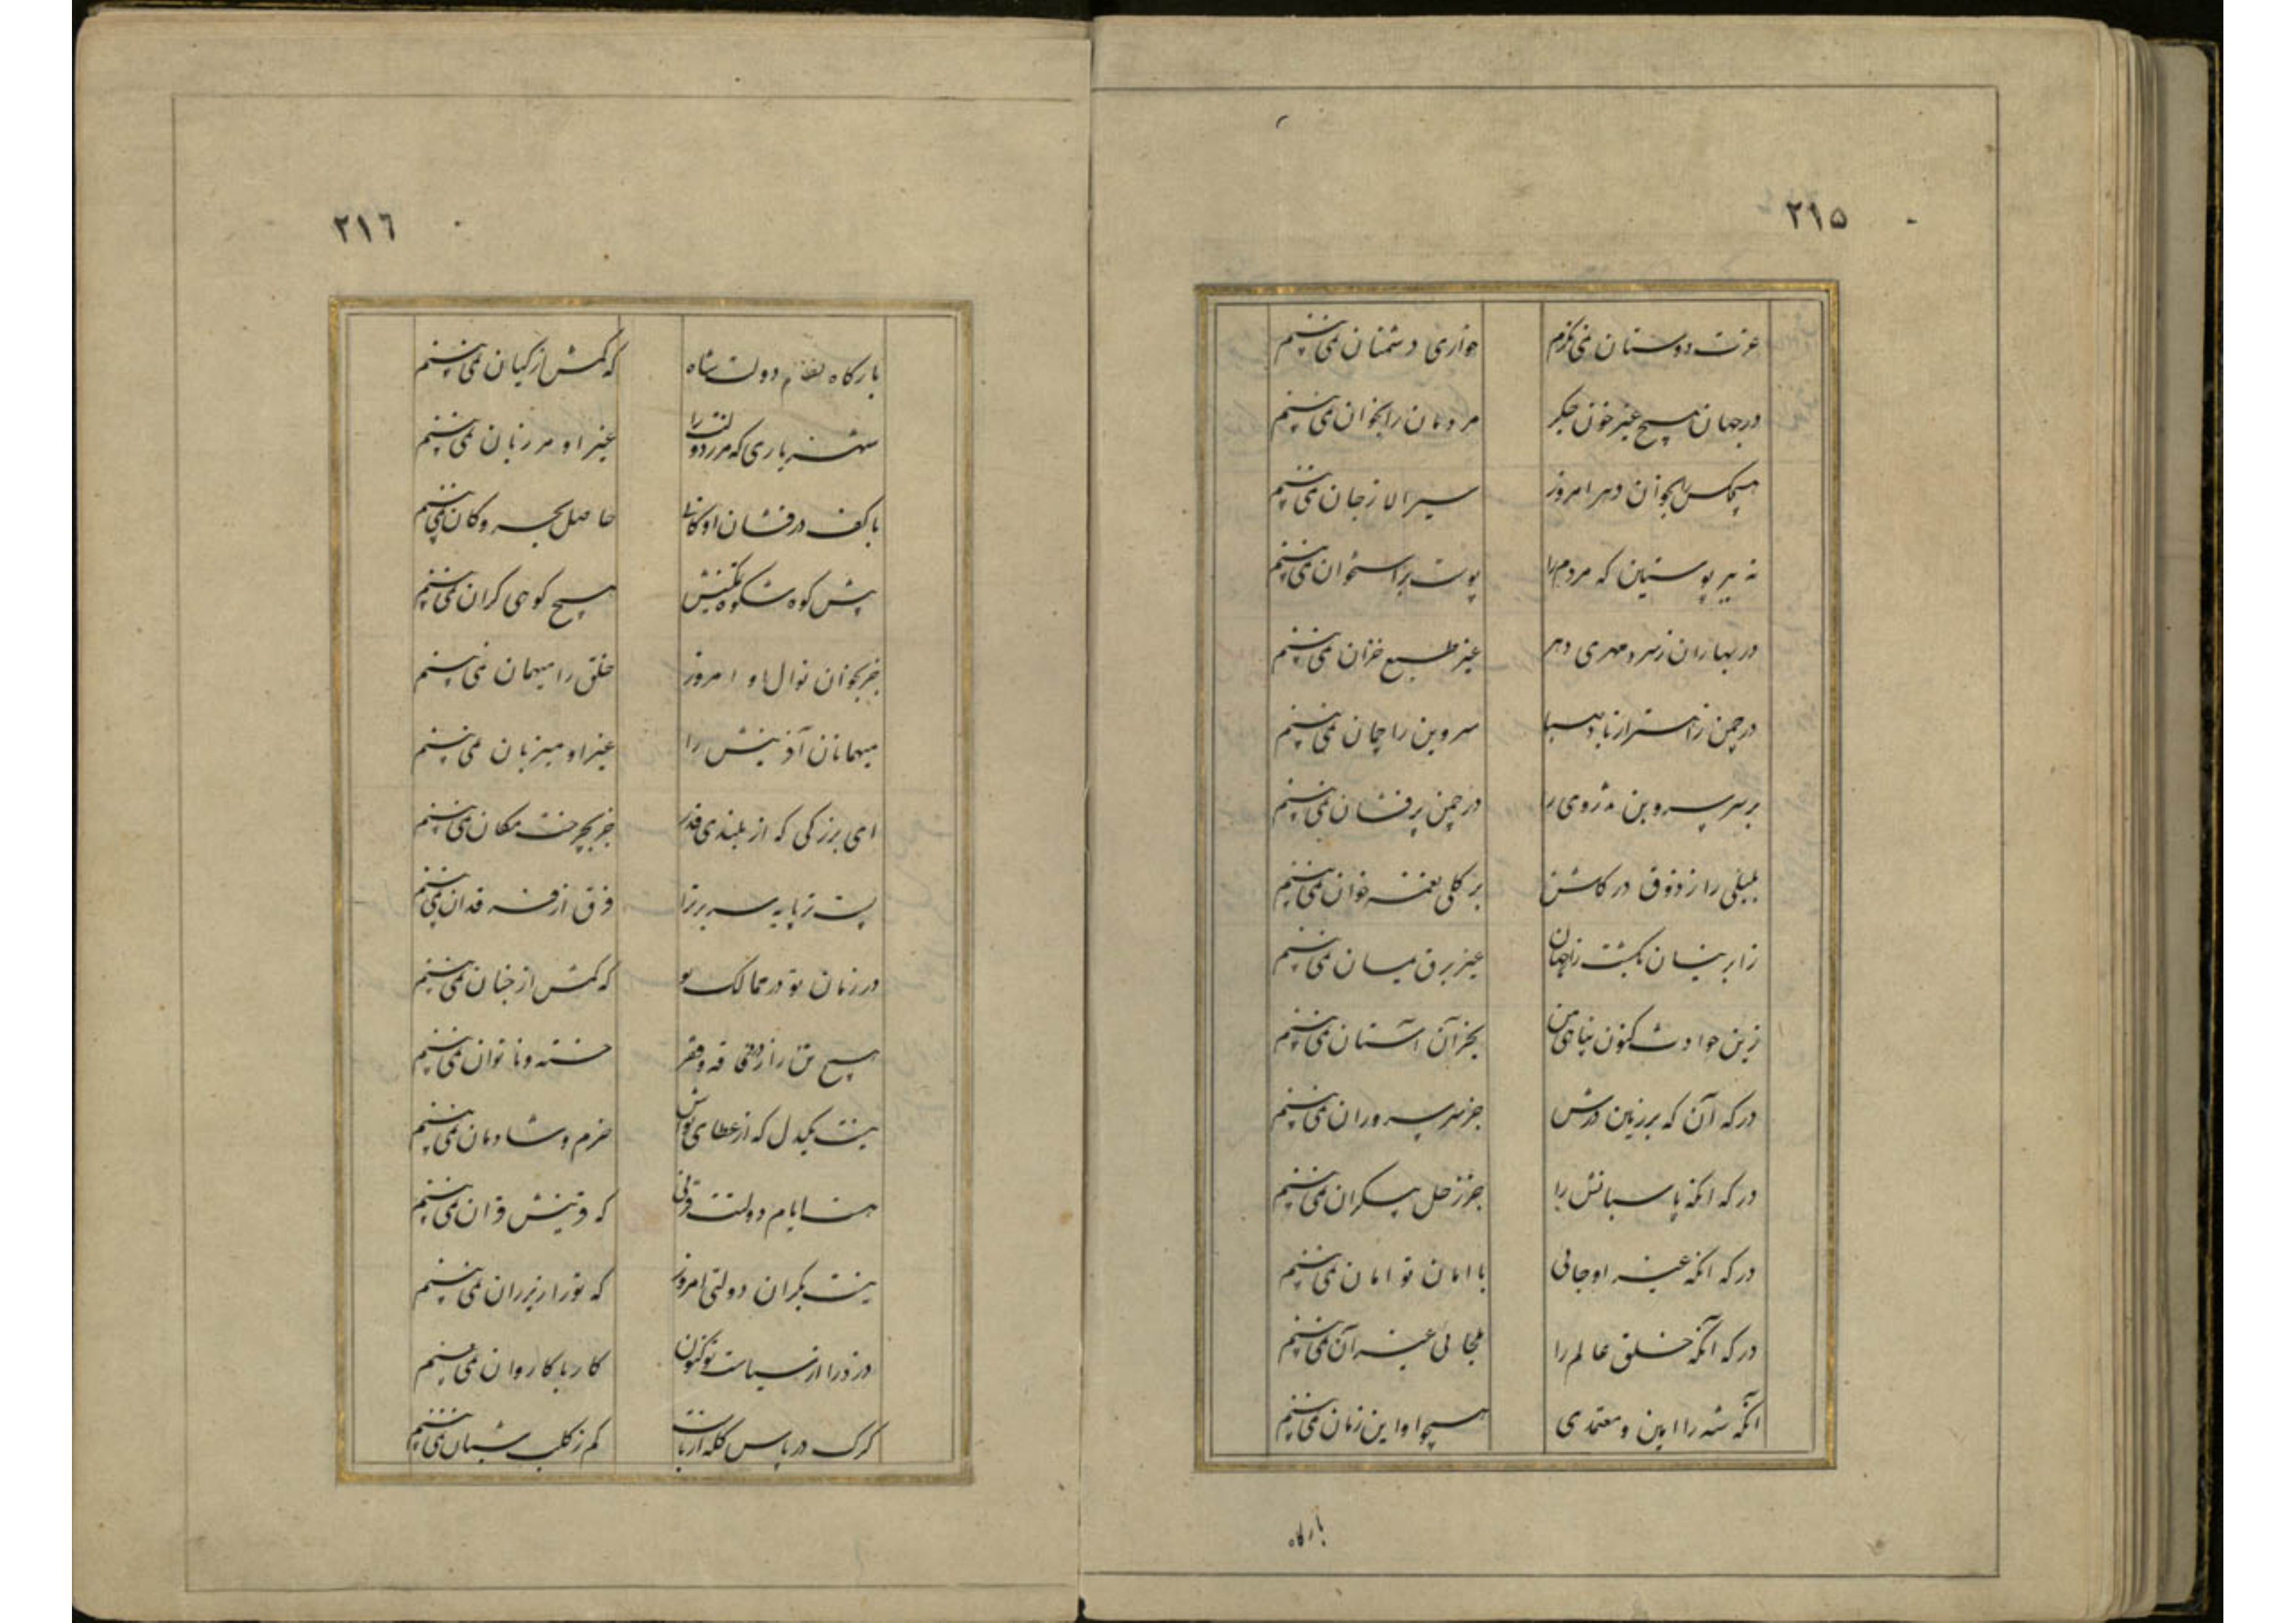 ٢١٥
عزت دوستان نمی نکرم خواری دشمنان نمی بینم
در جهان هیچ غیر خون جکر مردمان را بخوان نمی بینم
هیچکس بخوان دهر امروز سیر الا ز جان نمی بینم
نه بیر پوستین که مردم را پوست بر استخوان نمی بینم
در بهاران ز سرد مهری دهر غیر طبع خزان نمی بینم
در چمن ز اهتزاز باد صبا سروبن را چمان نمی بینم
بر سر سروبن تذروی را در چمن پرفشان نمی بینم
بلبلی را ز ذوق در کلشن بر کلی نغمه خوان نمی بینم
ز ابر نیسان بکشت زار جهان غیر برق میان نمی بینم
زین حوادث کنون پناهی من بجز آن آستان نمی بینم
درکه آن که بر زمین درش جز سر سروران نمی بینم
درکه انکه پاسبانش را جز زحل پیکران نمی بینم
درکه انکه غیر او جائی با امان تو امان نمی بینم
درکه آنکه خلق عالم را ملجائی غیر آن نمی بینم
انکه شه را امین و معتمدی همچو او این زمان نمی بینم
بارکاه
٢١٦
بارکاه نظام دولت شاه که کمش از کیان نمی بینم
شهریاری که مرز دولت را غیر او مرزبان نمی بینم
با کف درفشان او کانی حاصل بحر و کان نمی بینم
پیش کوه شکوه تمکینش هیچ کوهی کران نمی بینم
جز بخوان نوال او امروز خلق را میهمان نمی بینم
میهمانان آفرینش را غیر او میزبان نمی بینم
ای بزرکی که از بلندی قدر جز بچرخت مکان نمی بینم
پست ز پایه سریر ترا فرق از فرقدان نمی بینم
در زمان تو در ممالک تو که کمش از جنان نمی بینم
هیچ تن را ز فاقه و فقر خسته و ناتوان نمی بینم
نیست یکدل که از عطای تواش خرم و شادمان نمی بینم
هست ایام دولتت قرنی که قرینش قران نمی بینم
نیست یکران دولتی امروز که تورا زیر ران نمی بینم
دزد را از سیاست تو کنون کار با کاروان نمی بینم
کرک در پاس کله اربابت کم ز کلب شبان نمی بینم